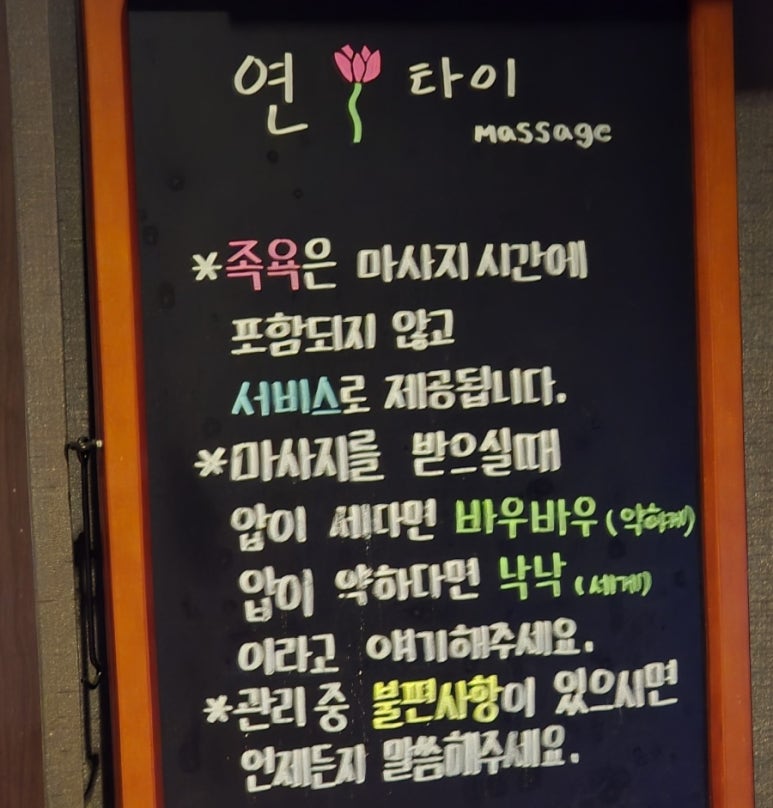 연 타이
massage
*족욕은 마사지 시간에
포함되지 않고
서비스로 제공됩니다.
*마사지를 받으실때
압이 세다면 바우바우 (약하게)
압이 약하다면 낙낙 (세게)
이라고 얘기해주세요.
*관리 중 불편사항이 있으시면
언제든지 말씀해주세요.